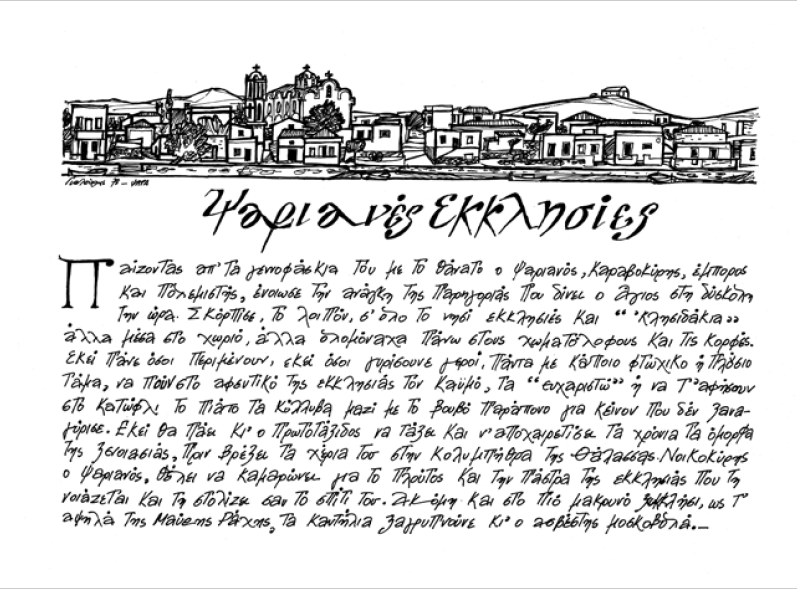 Ψαριανές Εκκλησίες
Παίζοντας απ' τα γεννοφάσκια του με το θάνατο ο Ψαριανός, καραβοκύρης, έμπορος
και πολεμιστής, ένοιωσε την ανάγκη της παρηγοριάς που δίνει ο Άγιος στη δύσκολη
την ώρα. Σκόρπισε, το λοιπόν, σ' όλο το νησί εκκλησιές και "κλησιδάκια"
άλλα μέσα στο χωριό, άλλα ολομόναχα πάνω στους χωματόλοφους και τις κορφές.
Εκεί πάνε όσοι περιμένουν, εκεί όσοι γυρίσουνε γεροί, πάντα με κάποιο φτωχικό ή πλούσιο
τάμα, να πούν στο αφεντικό της εκκλησιάς τον καϋμό, τα "ευχαριστώ" ή να τ' αφήσουν
στο κατώφλι το πιάτο τα κόλλυβα μαζί με το βουβό παράπονο για κείνον που δέν ξανα-
γύρισε. Εκεί θα πάει κι' ο πρωτοτάξιδος να τάξει και ν' αποχαιρετίσει τα χρόνια τα όμορφα
της ξενοιασιάς, πριν βρέξει τα χέρια του στην κολυμπήθρα της θάλασσας. Νοικοκύρης
ο Ψαριανός, θέλει να καμαρώνει για το πλούτος και την πάστρα της εκκλησιάς που τη
νοιάζεται και τη στολίζει σαν το σπίτι του. Ακόμη και στο πιό μακρυνό ξωκκλήσι, ως τ'
αψηλά της Μαύρης Ράχης, τα καντήλια ξαγρυπνούνε κι' ο ασβέστης μοσκοβολά.—